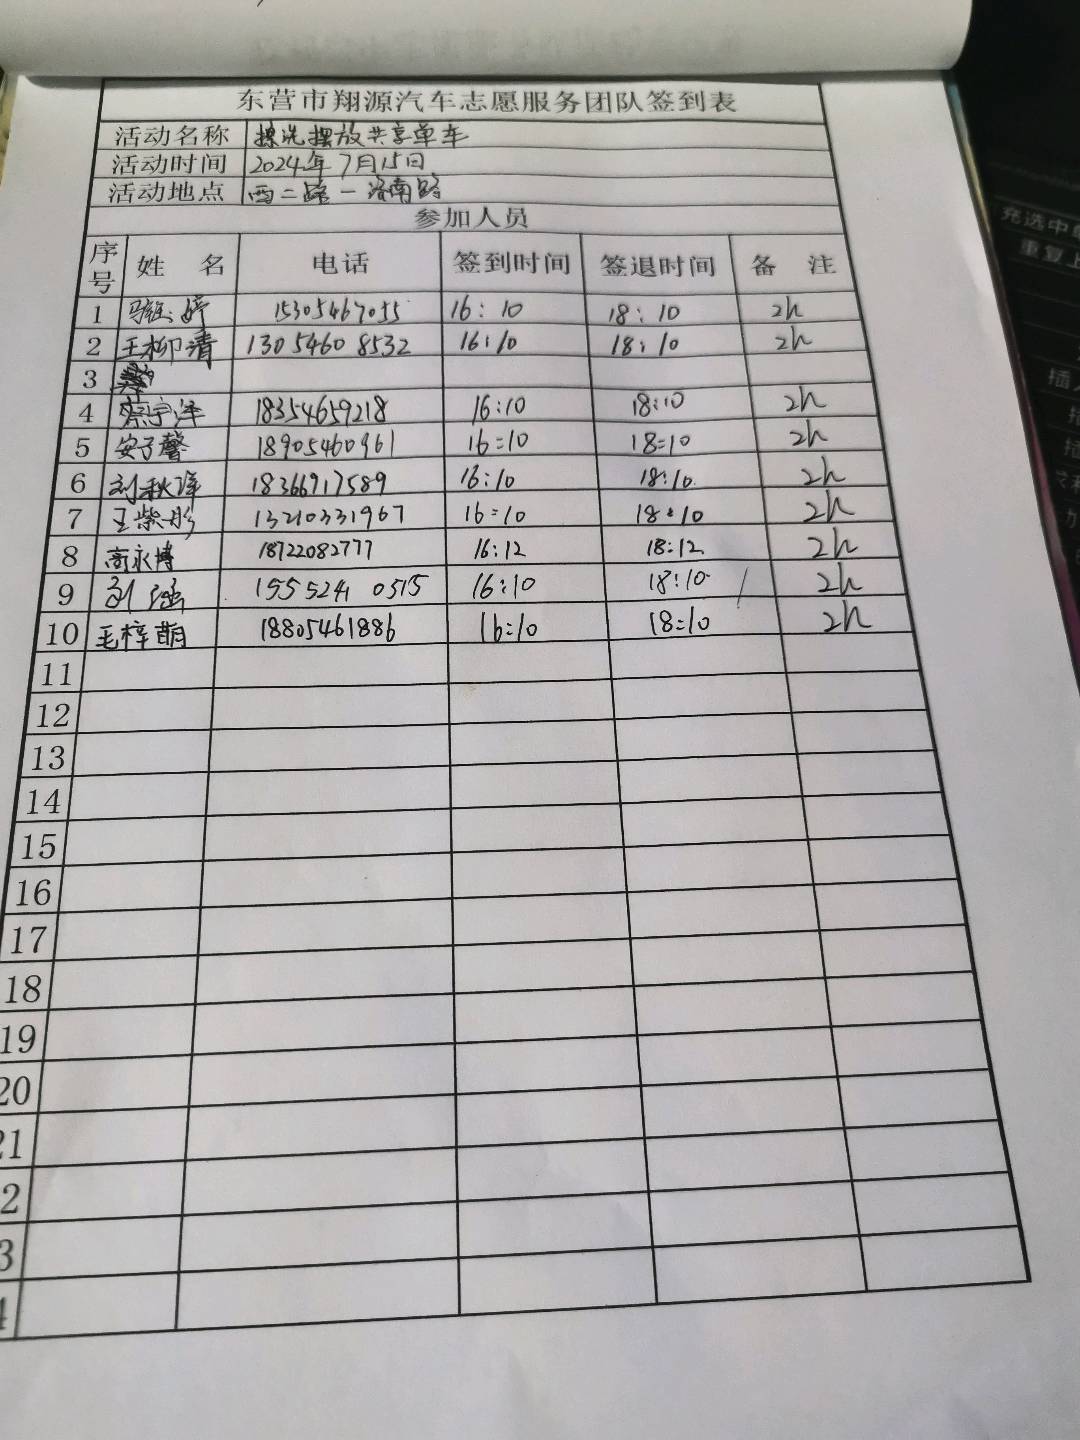 东营市翔源汽车志愿服务团队签到表
活动名称 擦洗摆放共享单车
活动时间 2024年7月15日
活动地点 西二路一济南路
参加人员
序号 姓 名 电话 签到时间 签退时间 备 注
1 婷 15305467055 16:10 18:10 2h
2 王柳清 13054608532 16:10 18:10 2h
3
4 蔡宇泽 18354659218 16:10 18:10 2h
5 安子馨 18905460961 16:10 18:10 2h
6 刘秋 18366917589 16:10 18:10 2h
7 王紫彤 13210331967 16:10 18:10 2h
8 高永博 18722082777 16:12 18:12 2h
9 刘 15552410515 16:10 18:10 2h
10 毛梓萌 18805461886 16:10 18:10 2h
11
12
13
14
15
16
17
18
19
20
21
2
3
4
充选中单
重复上
插入